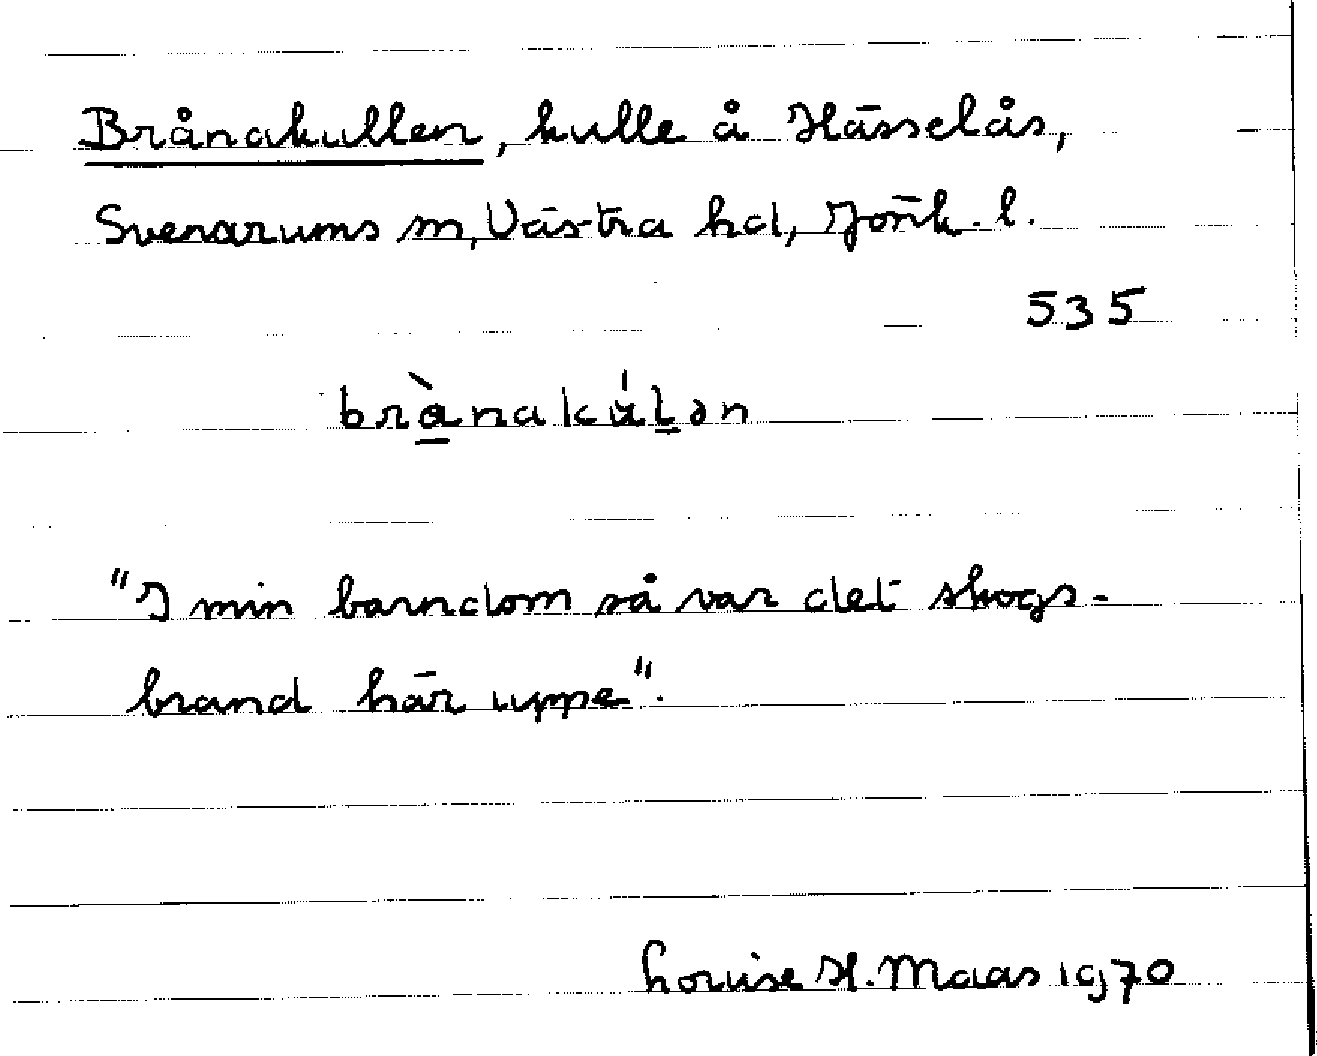 Brånakullen, kulle å Hässelås,
Svenarums sn, Västra hd, Jönk. l.
535
brànakúlən
"I min barndom så var det skogs-
brand här uppe".
Louise H. Maas 1970